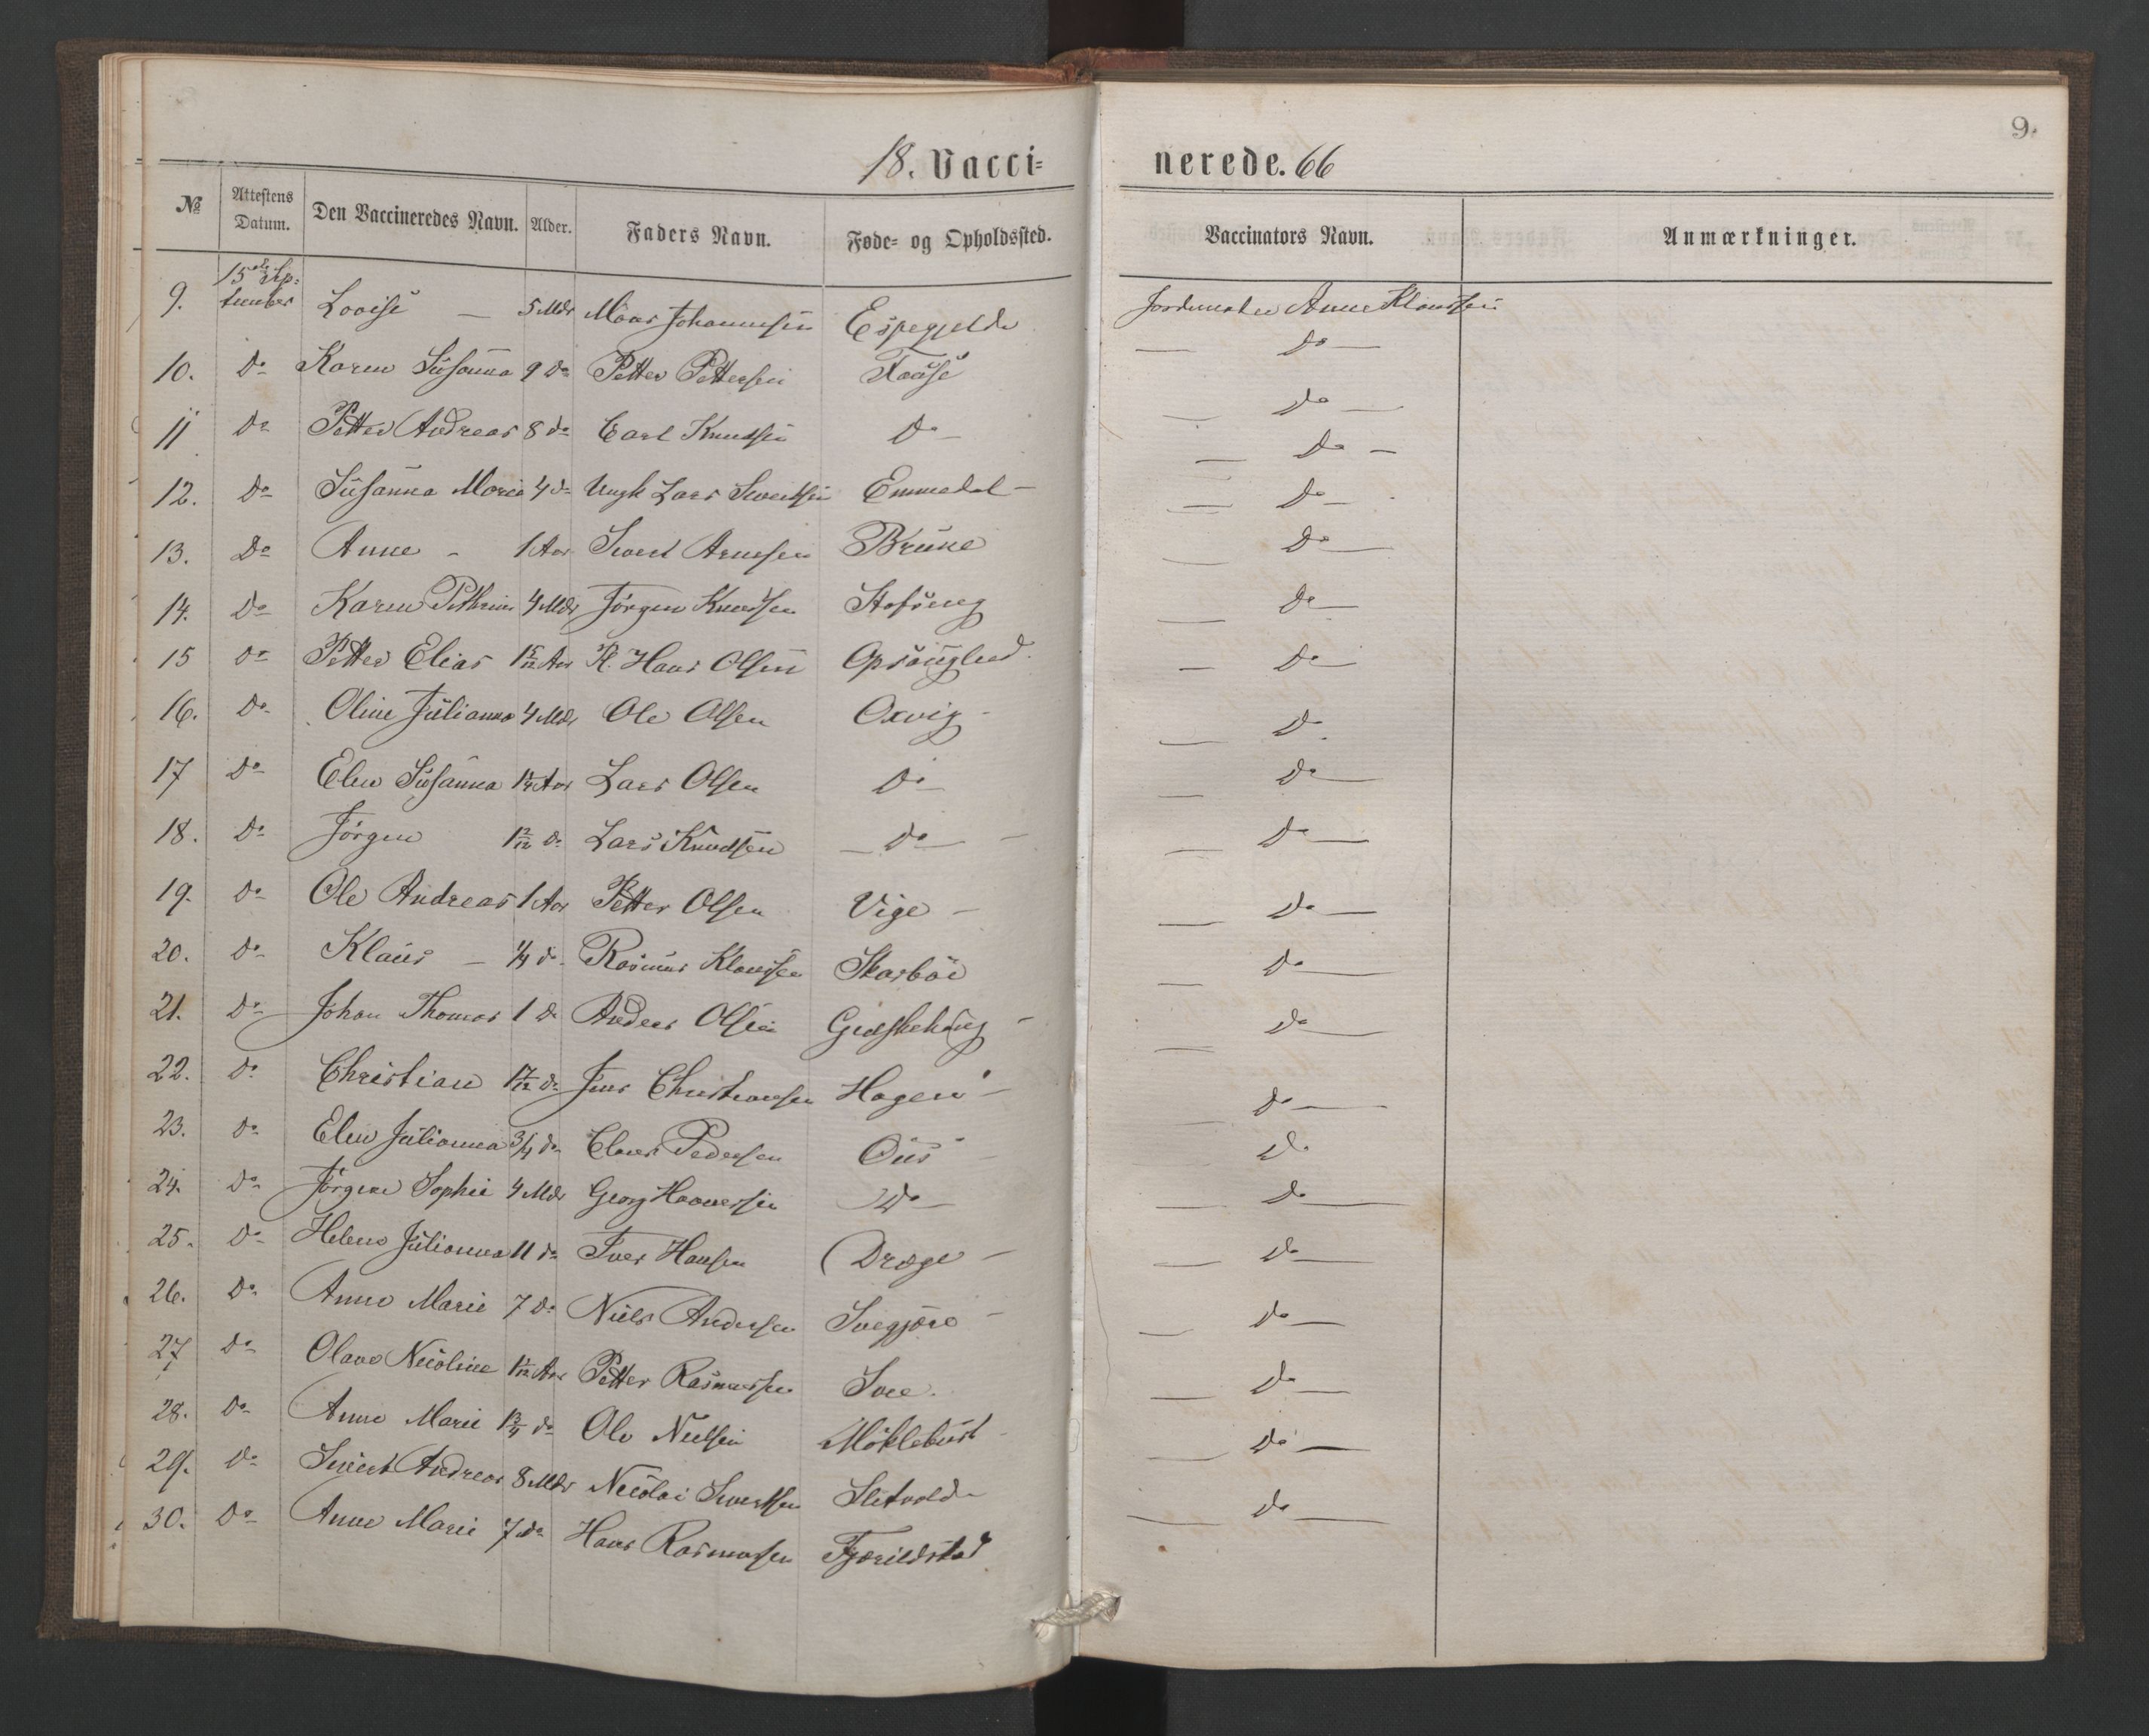 9.
18. Vacci=
nerede. 66
№ Attestens Datum. Den Vaccineredes Navn. Alder. Faders Navn. Føde= og Opholdssted. Vaccinators Navn. Anmærkninger.
9. 15de Sep=
tember Lovise — 5 Mdr Mons Johannesen Espegjelde Jordemoder Anne Klaussen
10. Do Karen Susanna 9 Do Petter Pettersen — Do —
11 Do Petter Andreas 8 do Carl Knudsen Do — — Do —
12. Do Susanna Maria 4 do Lars Sivertsen Emmedal — — Do —
13. Do Anne - 1 Aar Sivert Arnesen Brune — Do —
14. Do Karen Pethrine 4 Mdr Jørgen Knudsen Stafseng — Do —
15 Do Petter Elias 1 5/12 Aar H. Hans Olsen — Do —
16. Do Oline Julianna 4 Mdr Ole Olsen Oxvig — — Do —
17 Do Elen Susanna 1 1/4 Aar Lars Olsen Do — — Do
18. Do Jørgen 1 2/12 Do Lars Knudsen — Do — — — Do —
19. Do Ole Andreas 1 Aar Petter Olsen Vige — — Do —
20. Do Klaus — 1/4 d. Rasmus Klaussen Skarbøe — Do —
21. Do Johan Thomas 1 Do Anders Olsen Gidskehaug — — Do —
22. Do Christian 1 7/12 Do Jens Christiansen Hagen — — Do —
23. Do Elen Julianna 3/4 Do Claus Pedersen Øiis — — Do —
24. Do Jørgine Sophie 4 Mdr Georg Do — Do
25. Do Helene Julianna 11 do Iver Hansen Drage — — Do —
26. Do Anne Marie 7 Do Niels Andersen Svegjære — — Do —
27 Do Olave Nicoline 1 1/12 Aar Petter Rasmussen Svee. — Do —
28. Do Anne Marie 1 3/4 do Ole Nielsen Møklebust — Do —
29. Do Sivert Andreas 8 Mdr Nicolai Sivertsen Sletvolde — Do —
30. Do Anne Marie 7 do Hans Rasmussen Fjørildstad — Do —